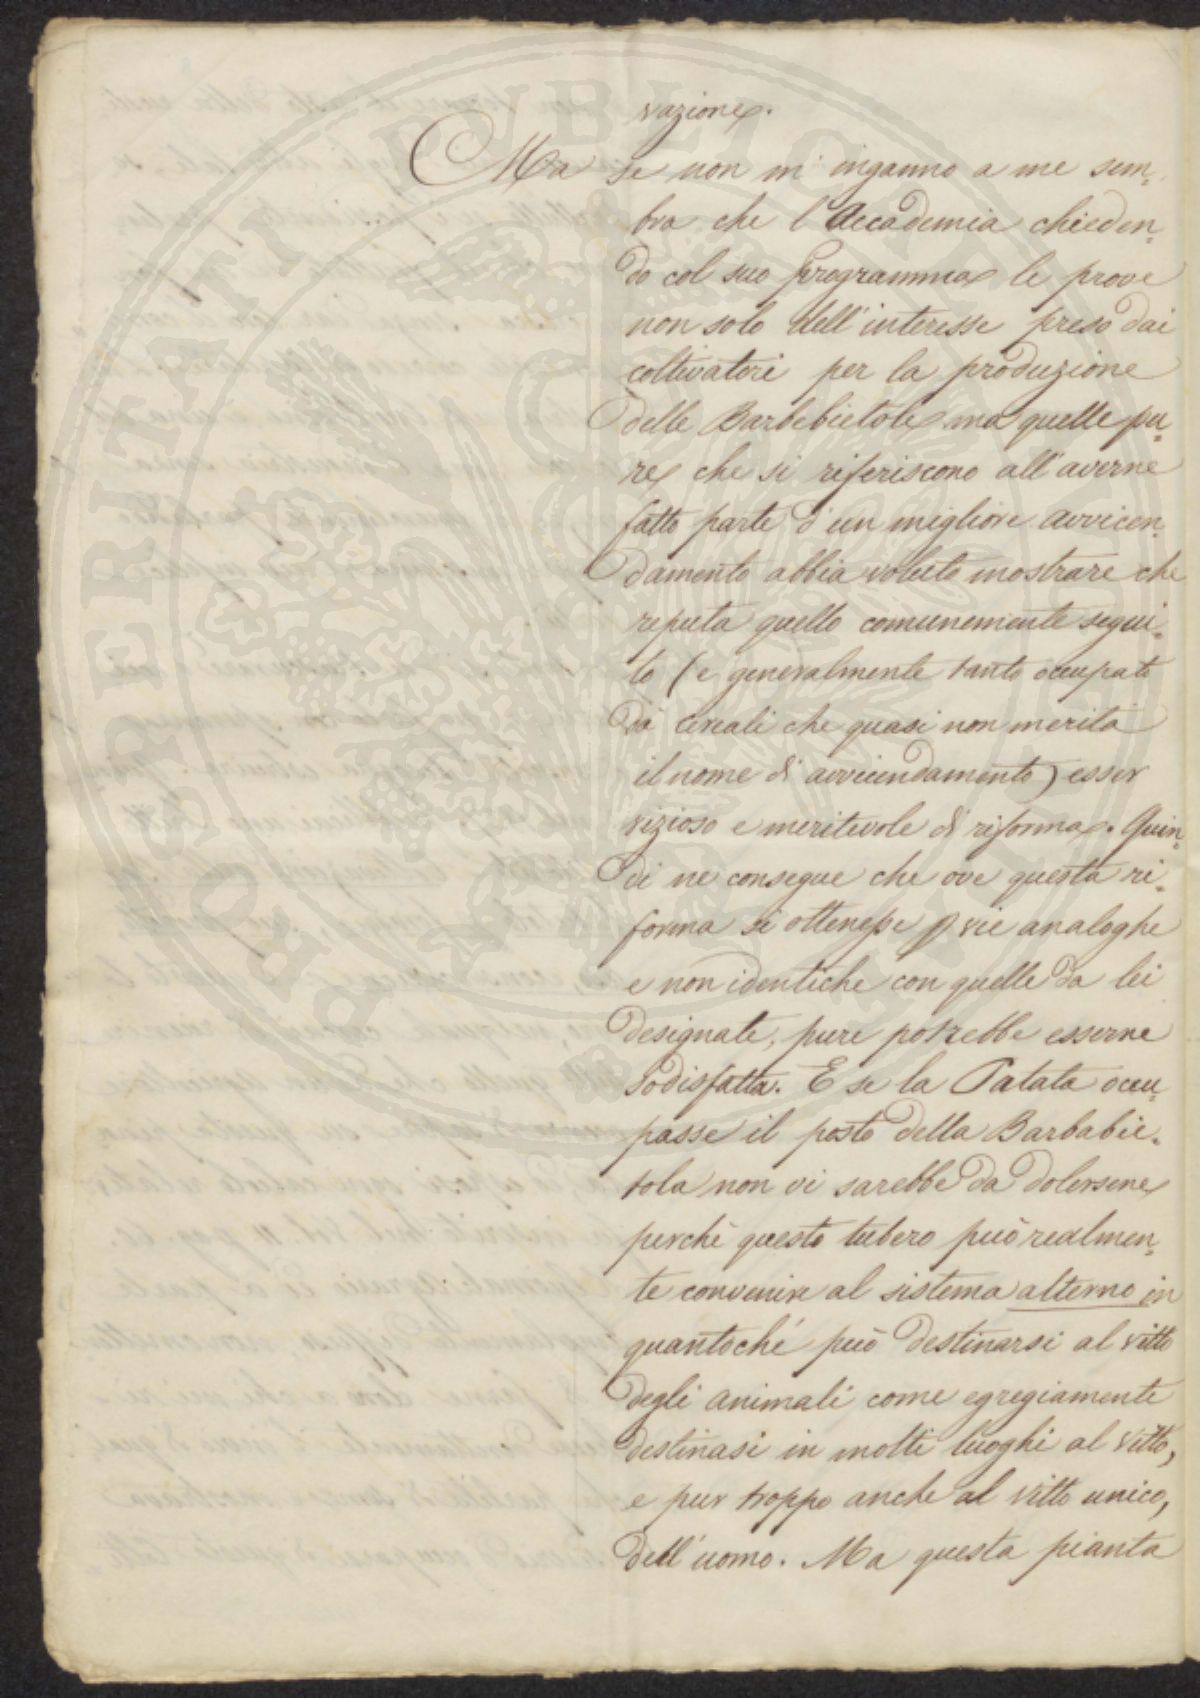 vazione.
Ma se non m'inganno a me sem-
bra che l'Accademia chieden-
do col suo Programma le prove
non solo dell'interesse preso dai
coltivatori per la produzione
delle Barbebietole ma quelle pu-
re che si riferiscono all'averne
fatto parte d'un migliore avvicen-
damento abbia voluto mostrare che
reputa quello comunemente segui-
to (e generalmente tanto occupato
da cereali che quasi non merita
il nome di avvicendamento) esser
vizioso e meritevole di riforma. Quin-
di ne consegue che ove questa ri-
forma si ottenesse p vie analoghe
e non identiche con quelle da lei
designate, pure potrebbe esserne
sodisfatta. E se la Patata occu-
passe il posto della Barbabie-
tola non vi sarebbe da dolersene
perchè questo tubero può realmen-
te convenire al sistema alterno in
quantoché può destinarsi al vitto
degli animali come egregiamente
destinasi in molti luoghi al vitto,
e pur troppo anche al vitto unico,
dell'uomo. Ma questa pianta
PROSPERITATI PUBLICAE